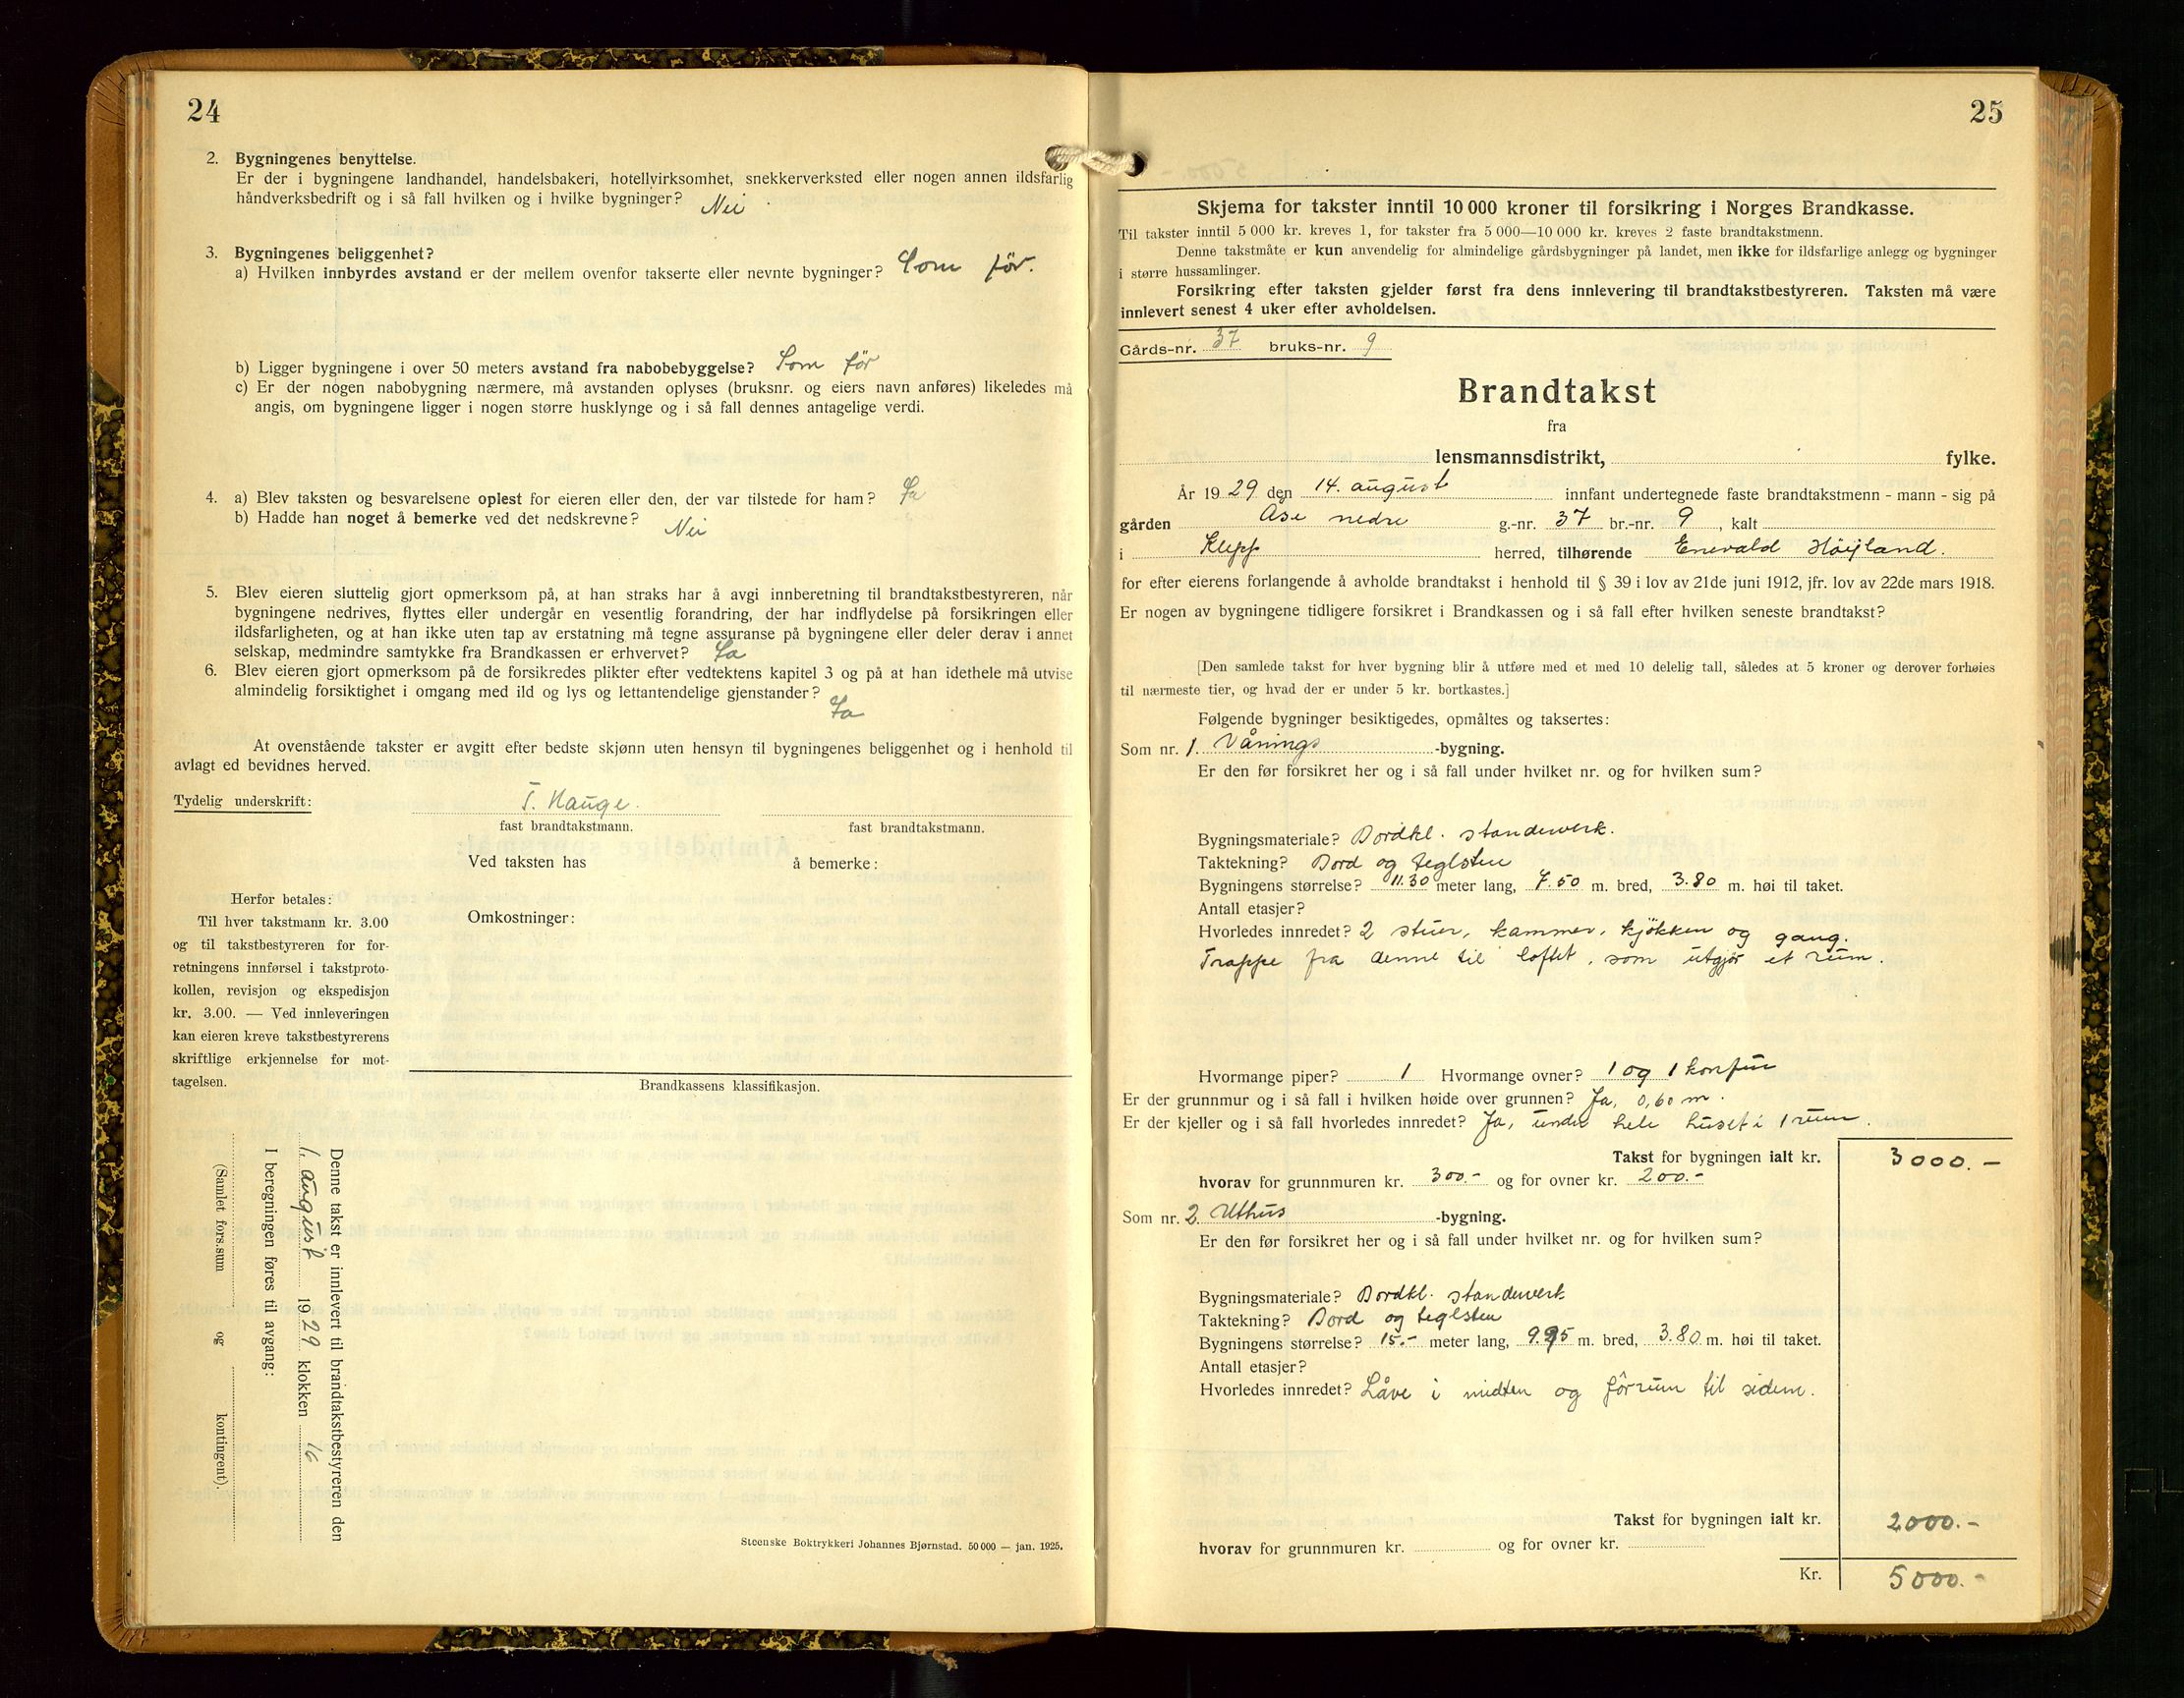 24
2. Bygningenes benyttelse.
Er der i bygningene landhandel, handelsbakeri, hotellvirksomhet, snekkerverksted eller nogen annen ildsfarlig
håndverksbedrift og i så fall hvilken og i hvilke bygninger? Nei
3. Bygningenes beliggenhet?
a) Hvilken innbyrdes avstand er der mellem ovenfor takserte eller nevnte bygninger? Som för.
b) Ligger bygningene i over 50 meters avstand fra nabobebyggelse? Som för
c) Er der nogen nabobygning nærmere, må avstanden oplyses (bruksnr. og eiers navn anføres) likeledes må
angis, om bygningene ligger i nogen større husklynge og i så fall dennes antagelige verdi.
4. a) Blev taksten og besvarelsene oplest for eieren eller den, der var tilstede for ham? Ja
b) Hadde han noget å bemerke ved det nedskrevne? Nei
5. Blev eieren sluttelig gjort opmerksom på, at han straks har å avgi innberetning til brandtakstbestyreren, når
bygningene nedrives, flyttes eller undergår en vesentlig forandring, der har indflydelse på forsikringen eller
ildsfarligheten, og at han ikke uten tap av erstatning må tegne assuranse på bygningene eller deler derav i annet
selskap, medmindre samtykke fra Brandkassen er erhvervet? Ja
6. Blev eieren gjort opmerksom på de forsikredes plikter efter vedtektens kapitel 3 og på at han idethele må utvise
almindelig forsiktighet i omgang med ild og lys og lettantendelige gjenstander? Ja
At ovenstående takster er avgitt efter bedste skjønn uten hensyn til bygningenes beliggenhet og i henhold til
avlagt ed bevidnes herved.
Tydelig underskrift: T. Hauge.
fast brandtakstmann. fast brandtakstmann.
Ved taksten has å bemerke:
Herfor betales:
Til hver takstmann kr. 3.00
og til takstbestyreren for for-
retningens innførsel i takstproto-
kollen, revisjon og ekspedisjon
kr. 3.00. — Ved innleveringen
kan eieren kreve takstbestyrerens
skriftlige erkjennelse for mot-
tagelsen.
Omkostninger:
Brandkassens klassifikasjon.
Denne takst er innlevert til brandtakstbestyreren den
1. august 1929 klokken 16
I beregningen føres til avgang:
(Samlet fors.sum og kontingent).
Steenske Boktrykkeri Johannes Bjørnstad. 50 000 — jan. 1925.
25
Skjema for takster inntil 10 000 kroner til forsikring i Norges Brandkasse.
Til takster inntil 5 000 kr. kreves 1, for takster fra 5 000—10 000 kr. kreves 2 faste brandtakstmenn.
Denne takstmåte er kun anvendelig for almindelige gårdsbygninger på landet, men ikke for ildsfarlige anlegg og bygninger
i større hussamlinger.
Forsikring efter taksten gjelder først fra dens innlevering til brandtakstbestyreren. Taksten må være
innlevert senest 4 uker efter avholdelsen.
Gårds-nr. 37 bruks-nr. 9
Brandtakst
fra
lensmannsdistrikt, fylke.
År 1929 den 14. august innfant undertegnede faste brandtakstmenn - mann - sig på
gården Åse nedre g.-nr. 37 br.-nr. 9, kalt
i Klepp herred, tilhørende Enevald Höiland.
for efter eierens forlangende å avholde brandtakst i henhold til § 39 i lov av 21de juni 1912, jfr. lov av 22de mars 1918.
Er nogen av bygningene tidligere forsikret i Brandkassen og i så fall efter hvilken seneste brandtakst?
[Den samlede takst for hver bygning blir å utføre med et med 10 delelig tall, således at 5 kroner og derover forhøies
til nærmeste tier, og hvad der er under 5 kr. bortkastes.]
Følgende bygninger besiktigedes, opmåltes og taksertes:
Som nr. 1. Vånings-bygning.
Er den før forsikret her og i så fall under hvilket nr. og for hvilken sum?
Bygningsmateriale? Bordkl. standerverk.
Taktekning? Bord og teglsten
Bygningens størrelse? 11.30 meter lang, 7.50 m. bred, 3.80 m. høi til taket.
Antall etasjer?
Hvorledes innredet? 2 stuer, kammer, kjökken og gang.
Trappe fra denne til loftet, som utgjör et rum.
Hvormange piper? 1 Hvormange ovner? 1 og 1 komfur
Er der grunnmur og i så fall i hvilken høide over grunnen? Ja, 0,60 m.
Er der kjeller og i så fall hvorledes innredet? Ja, under hele huset i 1 rum.
Takst for bygningen ialt kr. 3000.-
hvorav for grunnmuren kr. 300.- og for ovner kr. 200.-
Som nr. 2. Uthus-bygning.
Er den før forsikret her og i så fall under hvilket nr. og for hvilken sum?
Bygningsmateriale? Bordkl. standerverk
Taktekning? Bord og teglsten
Bygningens størrelse? 15.- meter lang, m. bred, 3.80 m. høi til taket.
Antall etasjer?
Hvorledes innredet? Låve i midten og fôrrum til sidene.
Takst for bygningen ialt kr. 2000.-
hvorav for grunnmuren kr. og for ovner kr.
Kr. 5000.-